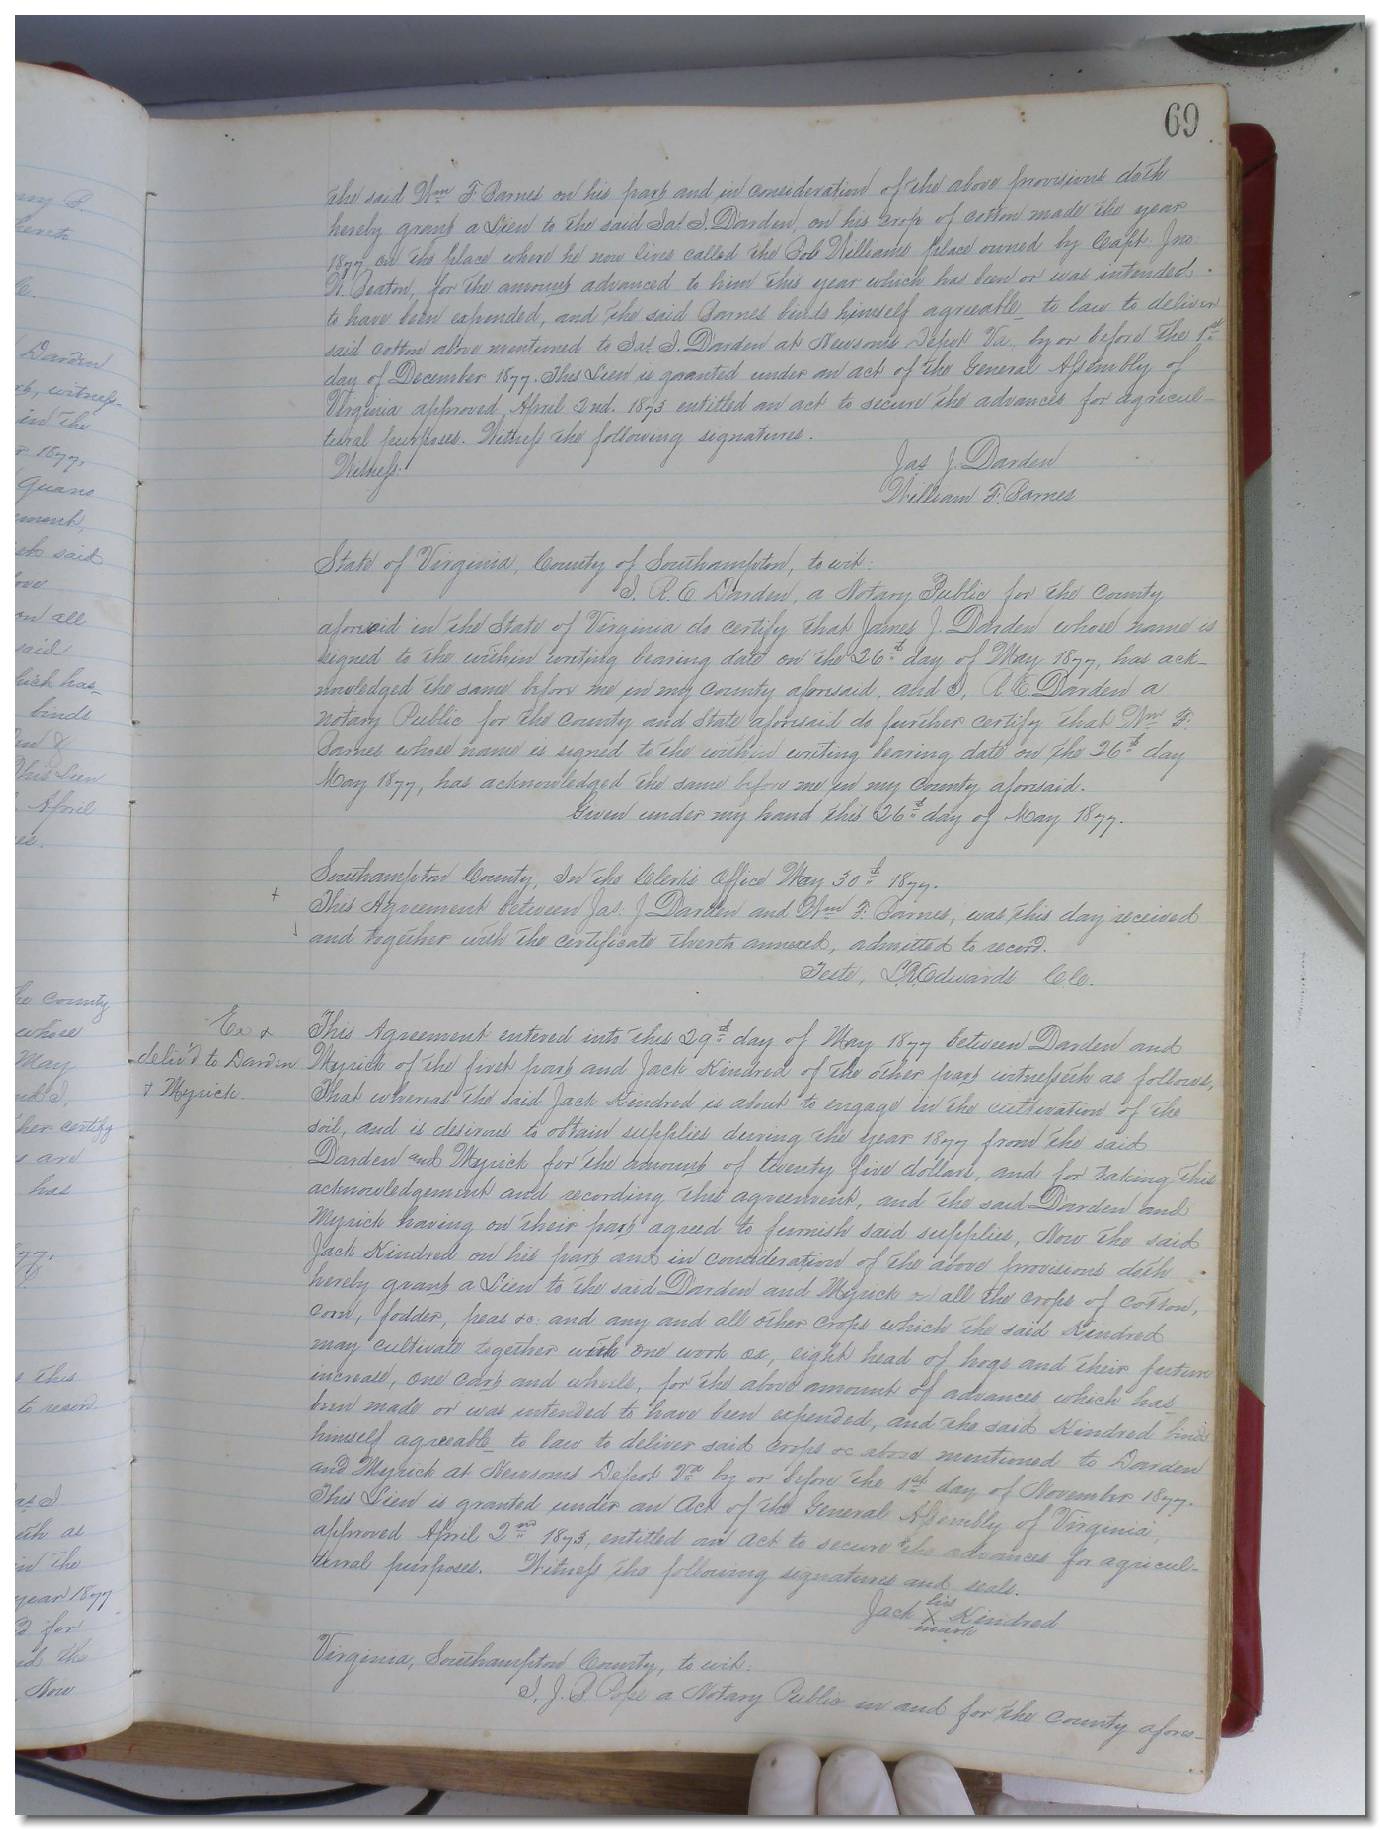 69
the said Wm F. Barnes on his part and in consideration of the above provisions doth
hereby grant a Lien to the said Jas. J. Darden, on his crop of cotton made the year
1877 on the place where he now lives called the Bob Williams place owned by Capt. Jno.
W. Beaton, for the amount advanced to him this year which has been or was intended
to have been expended, and the said Barnes binds himself agreeable to law to deliver
said cotton above mentioned to Jas. J. Darden at Newsoms Depot Va. by or before the 1st
day of December 1877. This Lien is granted under an act of the General Assembly of
Virginia approved, April 2nd. 1873 entitled an act to secure the advances for agricul-
tural purposes. Witness the following signatures.
Witness:
Jas. J. Darden
William F. Barnes
State of Virginia, County of Southampton, to wit:
I, R. E. Darden, a Notary Public for the County
aforesaid in the State of Virginia do certify that James J. Darden whose name is
signed to the within writing bearing date on the 26th day of May 1877, has ack-
nowledged the same before me in my county aforesaid, and I, R. E. Darden a
notary Public for the county and State aforesaid do further certify that Wm F.
Barnes whose name is signed to the within writing bearing date on the 26th day
May 1877, has acknowledged the same before me in my County aforesaid.
Given under my hand this 26th day of May 1877.
Southampton County, In the Clerk's Office May 30th 1877.
This Agreement between Jas. J. Darden and Wm F. Barnes, was this day received
and together with the certificate thereto annexed, admitted to record.
Teste, L. R. Edwards C.C.
Ex &
deliv'd to Darden
& Myrick.
This Agreement entered into this 29th day of May 1877 between Darden and
Myrick of the first part and Jack Kindred of the other part witnesseth as follows,
That whereas the said Jack Kindred is about to engage in the cultivation of the
soil, and is desirous to obtain supplies during the year 1877 from the said
Darden and Myrick for the amount of twenty five dollars, and for taking this
acknowledgement and recording this agreement, and the said Darden and
Myrick having on their part agreed to furnish said supplies, Now the said
Jack Kindred on his part and in consideration of the above provisions doth
hereby grant a Lien to the said Darden and Myrick on all the crops of cotton,
corn, fodder, peas &c. and any and all other crops which the said Kindred
may cultivate together with one work ox, eight head of hogs and their future
increase, one cart and wheels, for the above amount of advances which has
been made or was intended to have been expended, and the said Kindred binds
himself agreeable to law to deliver said crops &c above mentioned to Darden
and Myrick at Newsoms Depot Va by or before the 1st day of November 1877.
This Lien is granted under an Act of the General Assembly of Virginia
approved April 2nd 1873, entitled an act to secure the advances for agricul-
tural purposes. Witness the following signatures and seals.
his
Jack X Kindred
mark
Virginia, Southampton County, to wit:
I, J. S. Pope a Notary Public in and for the County afores-